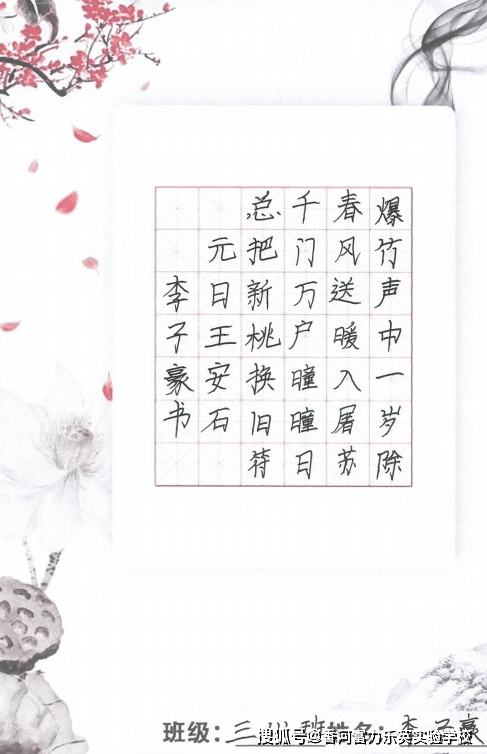 爆竹声中一岁除
春风送暖入屠苏
千门万户曈曈日
总把新桃换旧符
元日王安石
李子豪书
班级:三 班姓名:李子豪
搜狐号@香河富力乐英实验学校